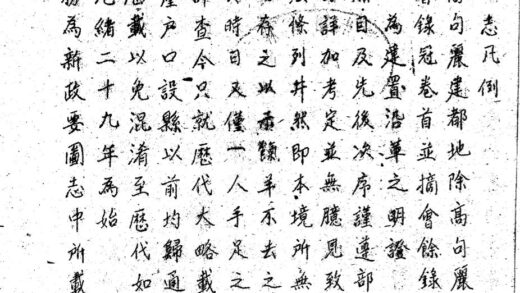 志凡例
高句麗建都地除高句麗
會錄冠卷首並摘會餘錄
為建置沿革之明證
目及先後次序謹遵部
詳加考定並無臆見致
條列井然即本境所無
存之以示餼羊不去之
時日又僅一人手足之
查今只就歷代大略載
戶口設縣以前均歸通
載以免混淆至歷代如
光緒二十九年為始
為新政要圖志中所載